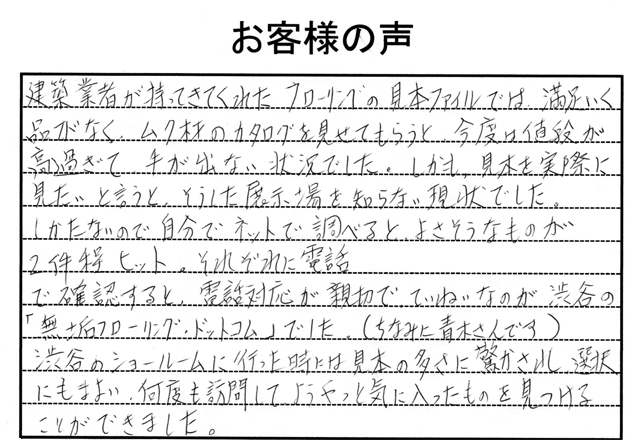 お客様の声
建築業者が持ってきてくれたフローリングの見本ファイルでは、満足いく
品がなく、ムク材のカタログを見せてもらうと、今度は値段が
高過ぎて手が出ない状況でした。しかも、見本を実際に
見たいと言うと、そうした展示場を知らない現状でした。
しかたないので自分でネットで調べると、よさそうなものが
2件程ヒット。それぞれに電話
で確認すると、電話対応が親切でていねいなのが渋谷の
「無垢フローリング・ドットコム」でした。(ちなみに青木さんです)
渋谷のショールームに行った時には見本の多さに驚かされ、選択
にもまよい、何度も訪問してようやっと気に入ったものを見つける
ことができました。